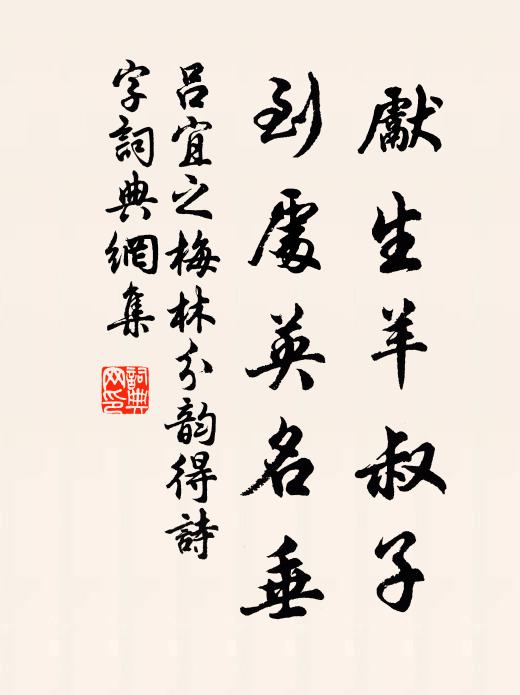 獻生羊叔子
到處英名垂
呂宜之梅林分韵得詩
字詞典網集
詞典網印